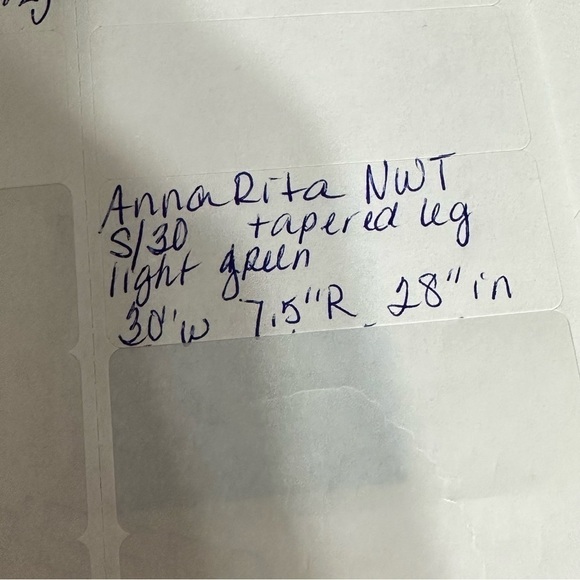 AnnaRita NWT
S/30 tapered leg
light green
30"w 7.5"R 28" in